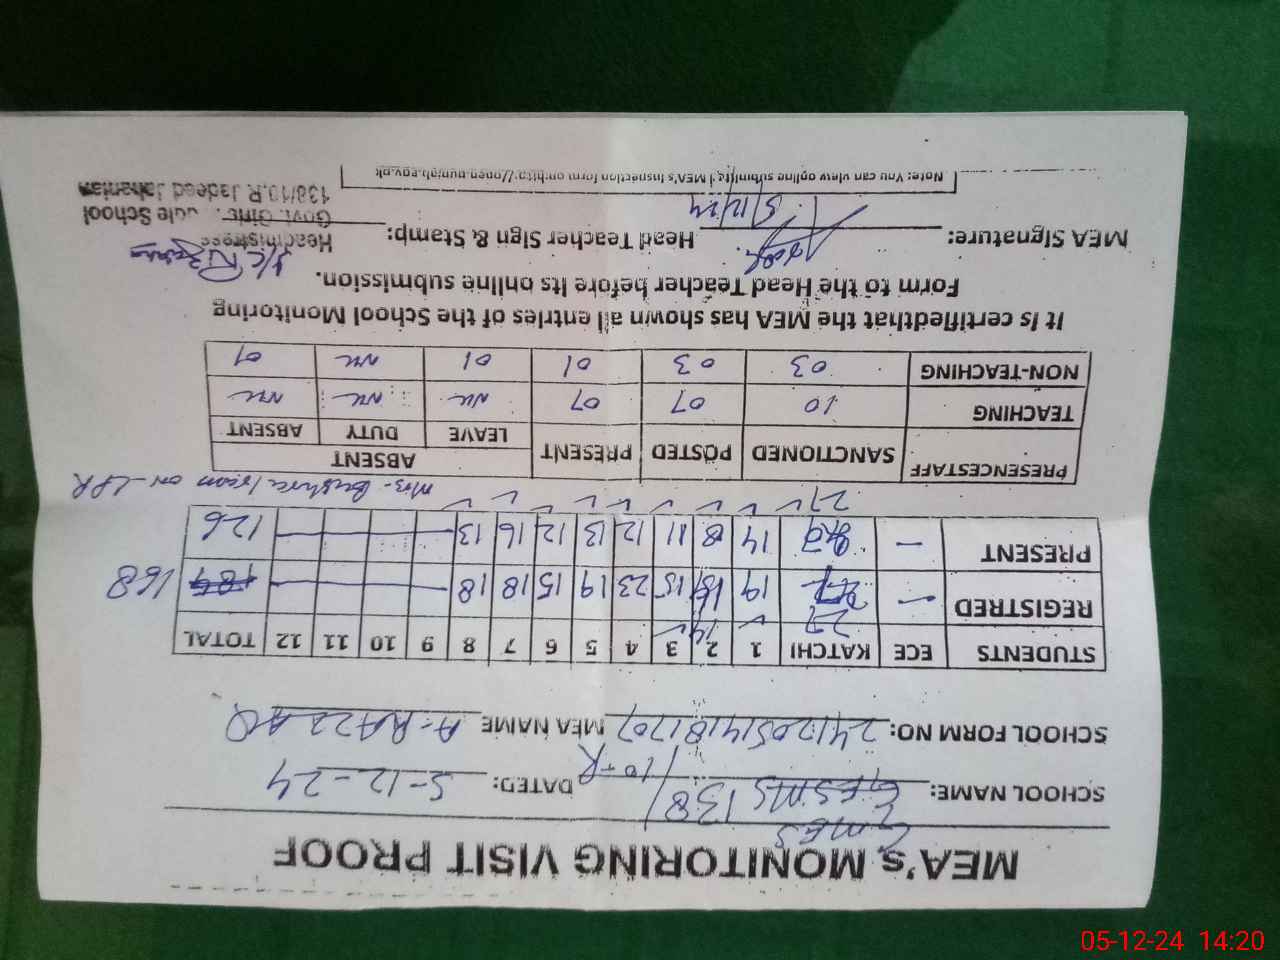 MEA's MONITORING VISIT PROOF
GMES
SCHOOL NAME: GESMS 138/10-R DATED: 5-12-24
SCHOOL FORM NO: 24120514181707 MEA NAME A-RAZZAQ
STUDENTS ECE KATCHI 1 2 3 4 5 6 7 8 9 10 11 12 TOTAL
27 14
REGISTRED — 19 15 23 19 15 18 18 168
PRESENT — 14 8 11 12 13 12 16 13 126
27
Mrs. on LPR
PRESENCESTAFF SANCTIONED POSTED PRESENT ABSENT
LEAVE DUTY ABSENT
TEACHING 10 07 07 NIL NIL NIL
NON-TEACHING 03 03 01 01 NIL 01
It is certifiedthat the MEA has shown all entries of the School Monitoring
Form to the Head Teacher before its online submission.
MEA Signature: 5/12/24 Head Teacher Sign & Stamp:
I/C
Headmistress
Govt. Girls School
138/10.R Jadeed Jahanian
Note: You can view online submitted MEA's inspection form on http://open.punjab.gov.pk
05-12-24 14:20